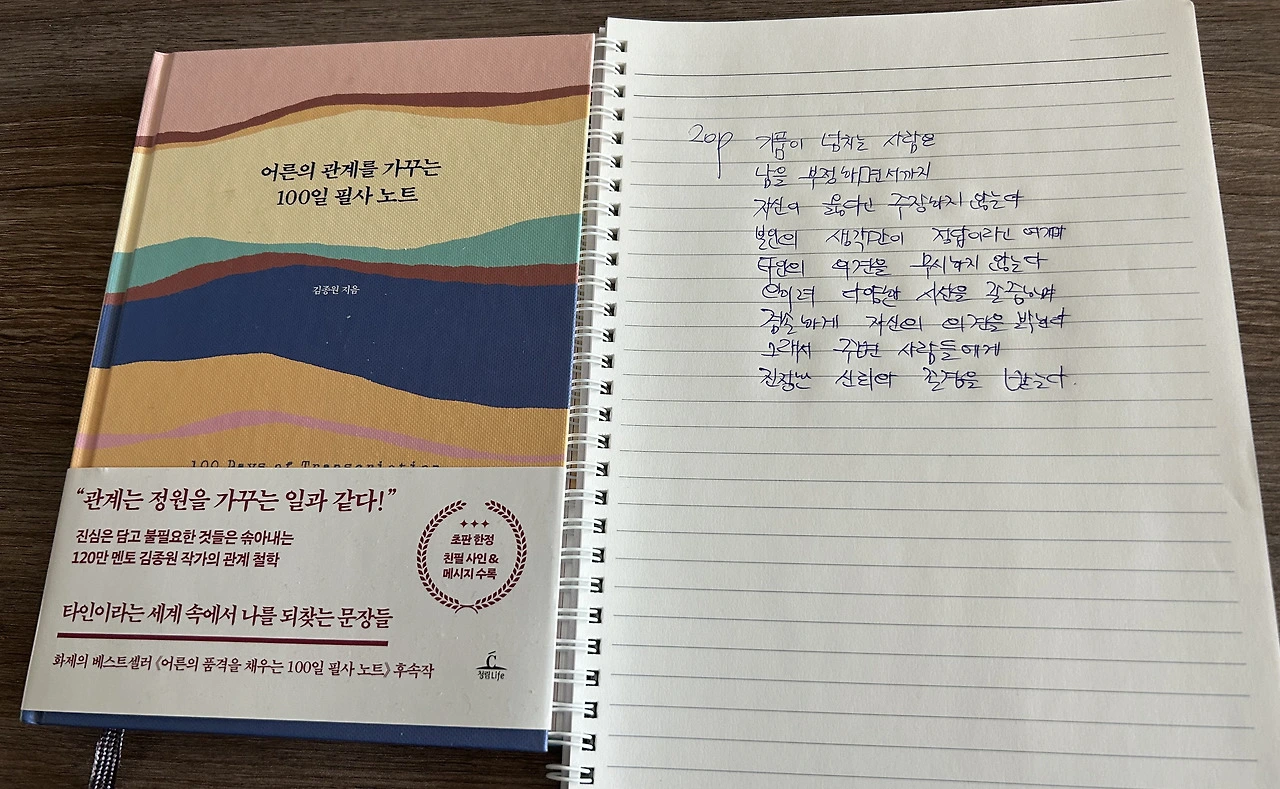 어른의 관계를 가꾸는
100일 필사 노트
김종원 지음
100 Days of Transcription
“관계는 정원을 가꾸는 일과 같다!”
진심은 담고 불필요한 것들은 솎아내는
120만 멘토 김종원 작가의 관계 철학
초판 한정
친필 사인 &
메시지 수록
타인이라는 세계 속에서 나를 되찾는 문장들
화제의 베스트셀러 《어른의 품격을 채우는 100일 필사 노트》 후속작
청림Life
20p 기품이 넘치는 사람은
남을 부정하면서까지
자신이 옳다고 주장하지 않는다
본인의 생각만이 정답이라고 여기며
타인의 의견을 무시하지 않는다
오히려 다양한 시선을 존중하며
겸손하게 자신의 의견을 밝힌다
그래서 주변 사람들에게
진정한 신뢰와 존경을 받는다.